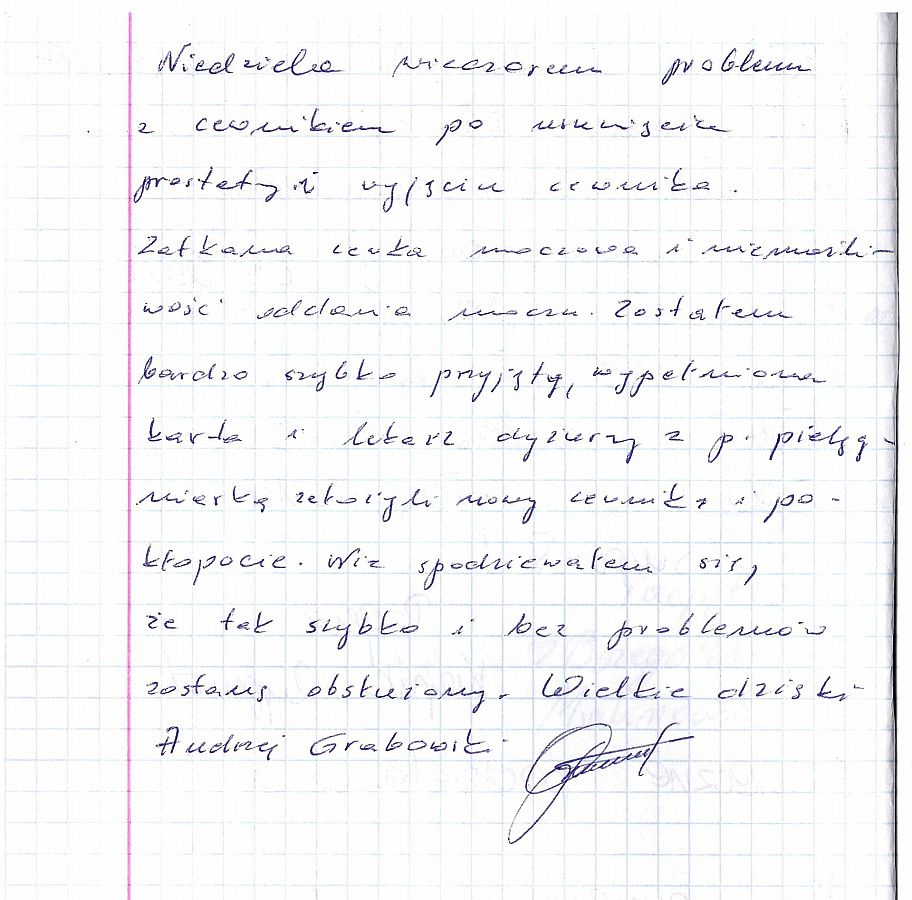 Niedziela wieczorem problem
z cewnikiem po usunięciu
prostaty i wyjściu cewnika.
Zatkana cewka moczowa i niemożli-
wość oddania moczu. Zostałem
bardzo szybko przyjęty, wypełniona
karta i lekarz dyżurny z p. pielęg-
niarką założyli nowy cewnik i po-
kłopocie. Nie spodziewałem się,
że tak szybko i bez problemów
zostanę obsłużony. Wielkie dzięki
Andrzej Grabowski